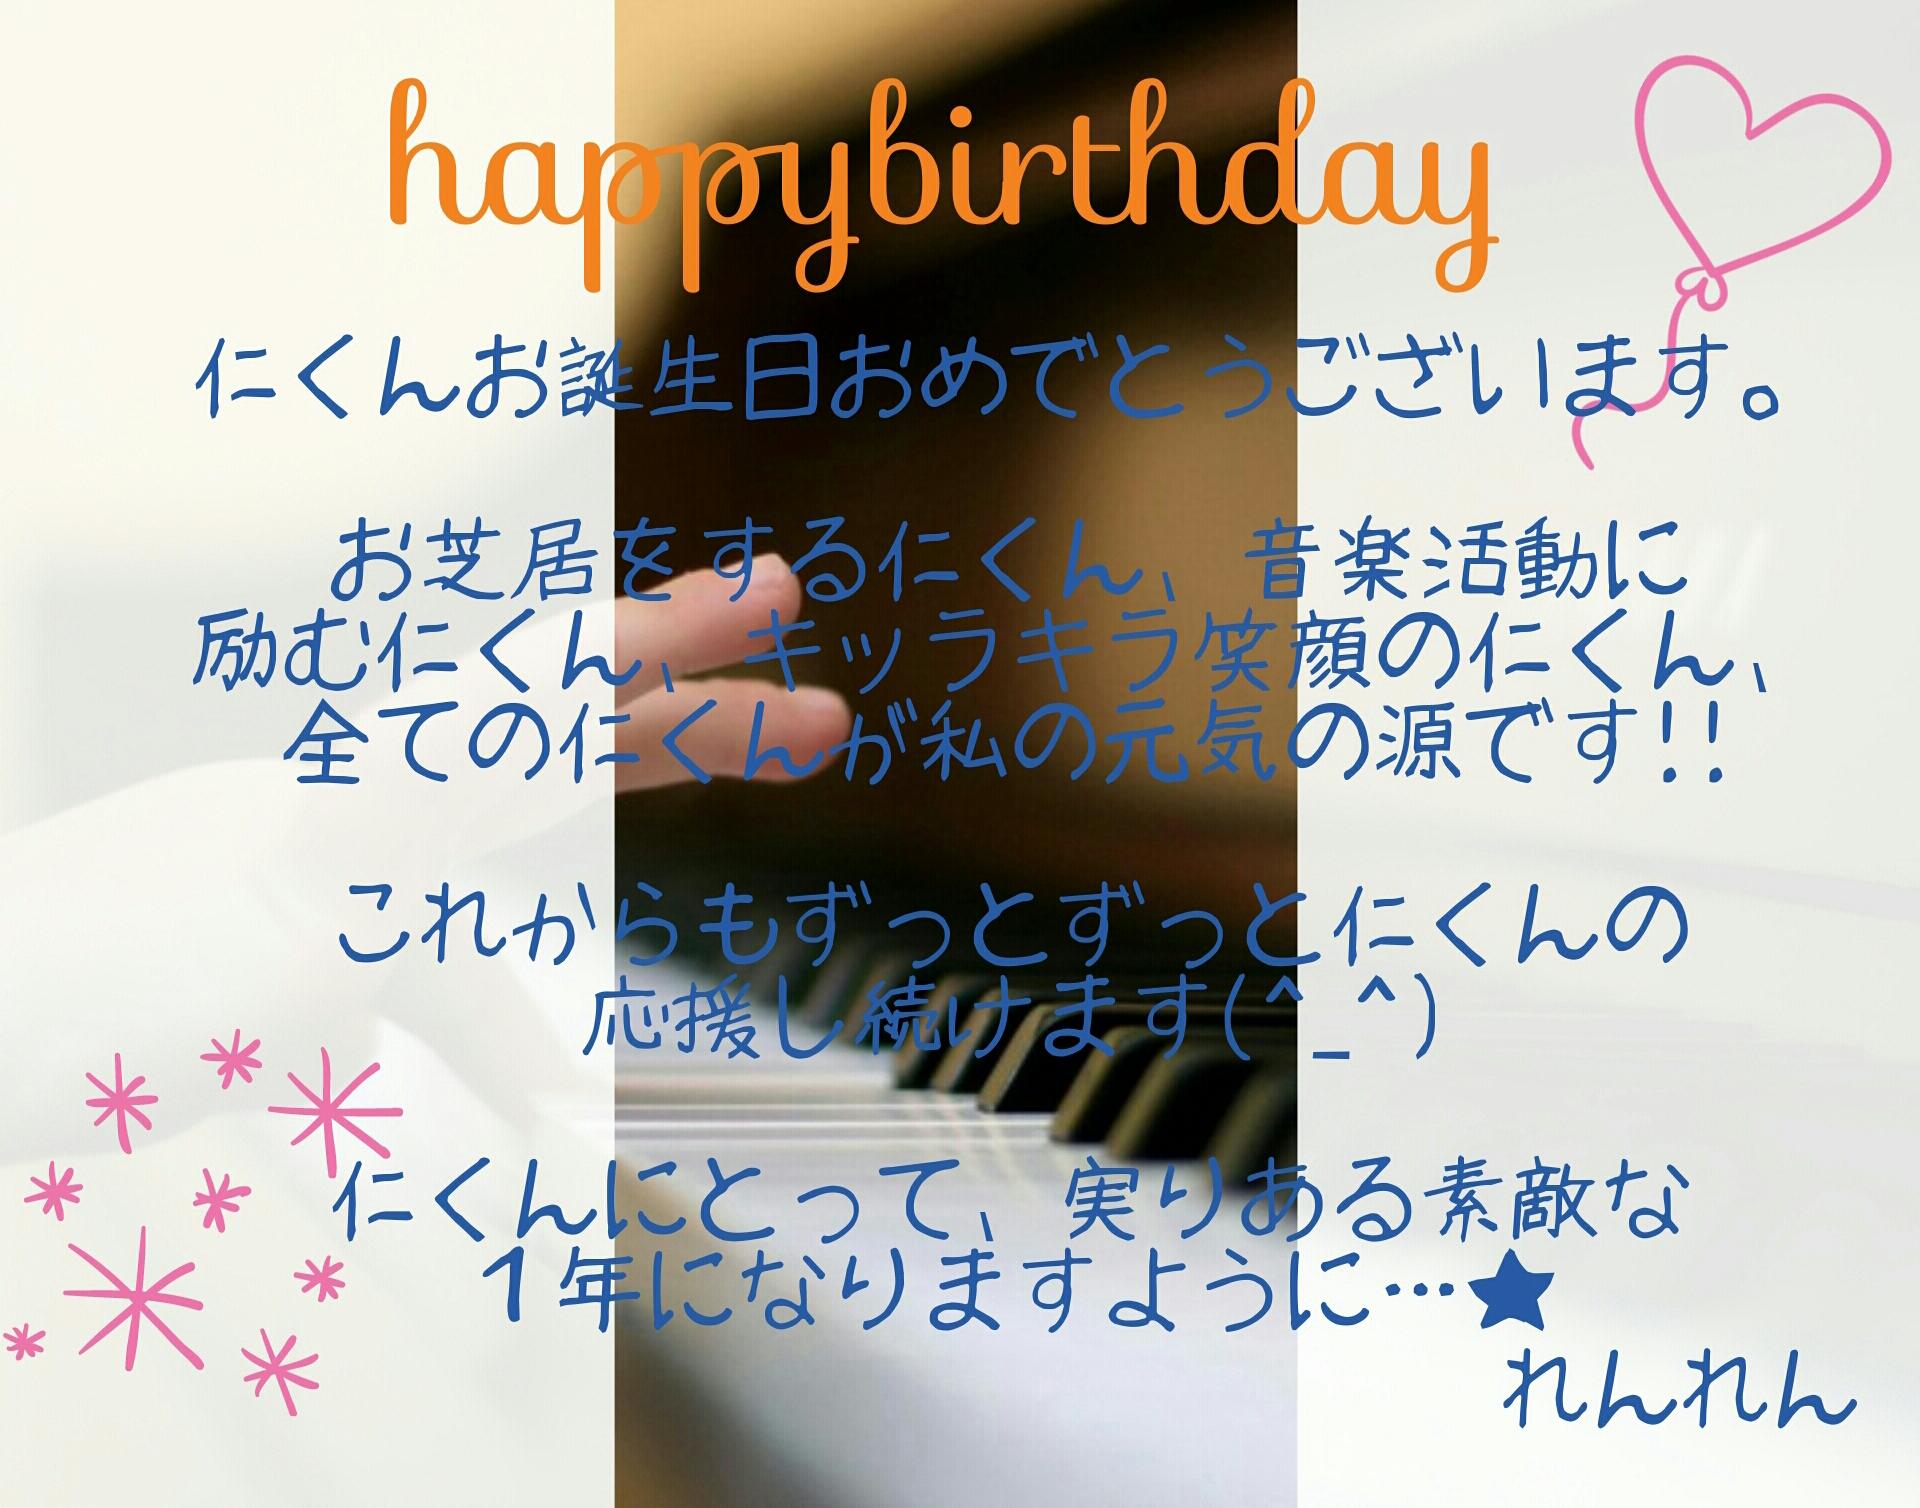 happybirthday
仁くんお誕生日おめでとうございます。
お芝居をする仁くん、音楽活動に
励む仁くん、キッラキラ笑顔の仁くん、
全ての仁くんが私の元気の源です!!
これからもずっとずっと仁くんの
応援し続けます(^_^)
仁くんにとって、実りある素敵な
1年になりますように…★
れんれん